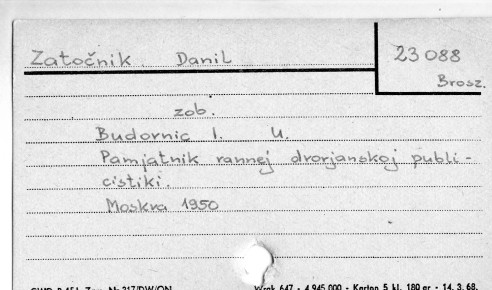 Zatočnik Danil
23 088
Brosz.
zob.
Budornic I. U.
Pamjatnik rannej dvorjanskoj publi-
cistiki.
Moskva 1950
Zam. Nr 317/DW/ON
Wrak 647 - 4 945 000 - Karton 5 kl. 180 gr - 14. 3. 68.